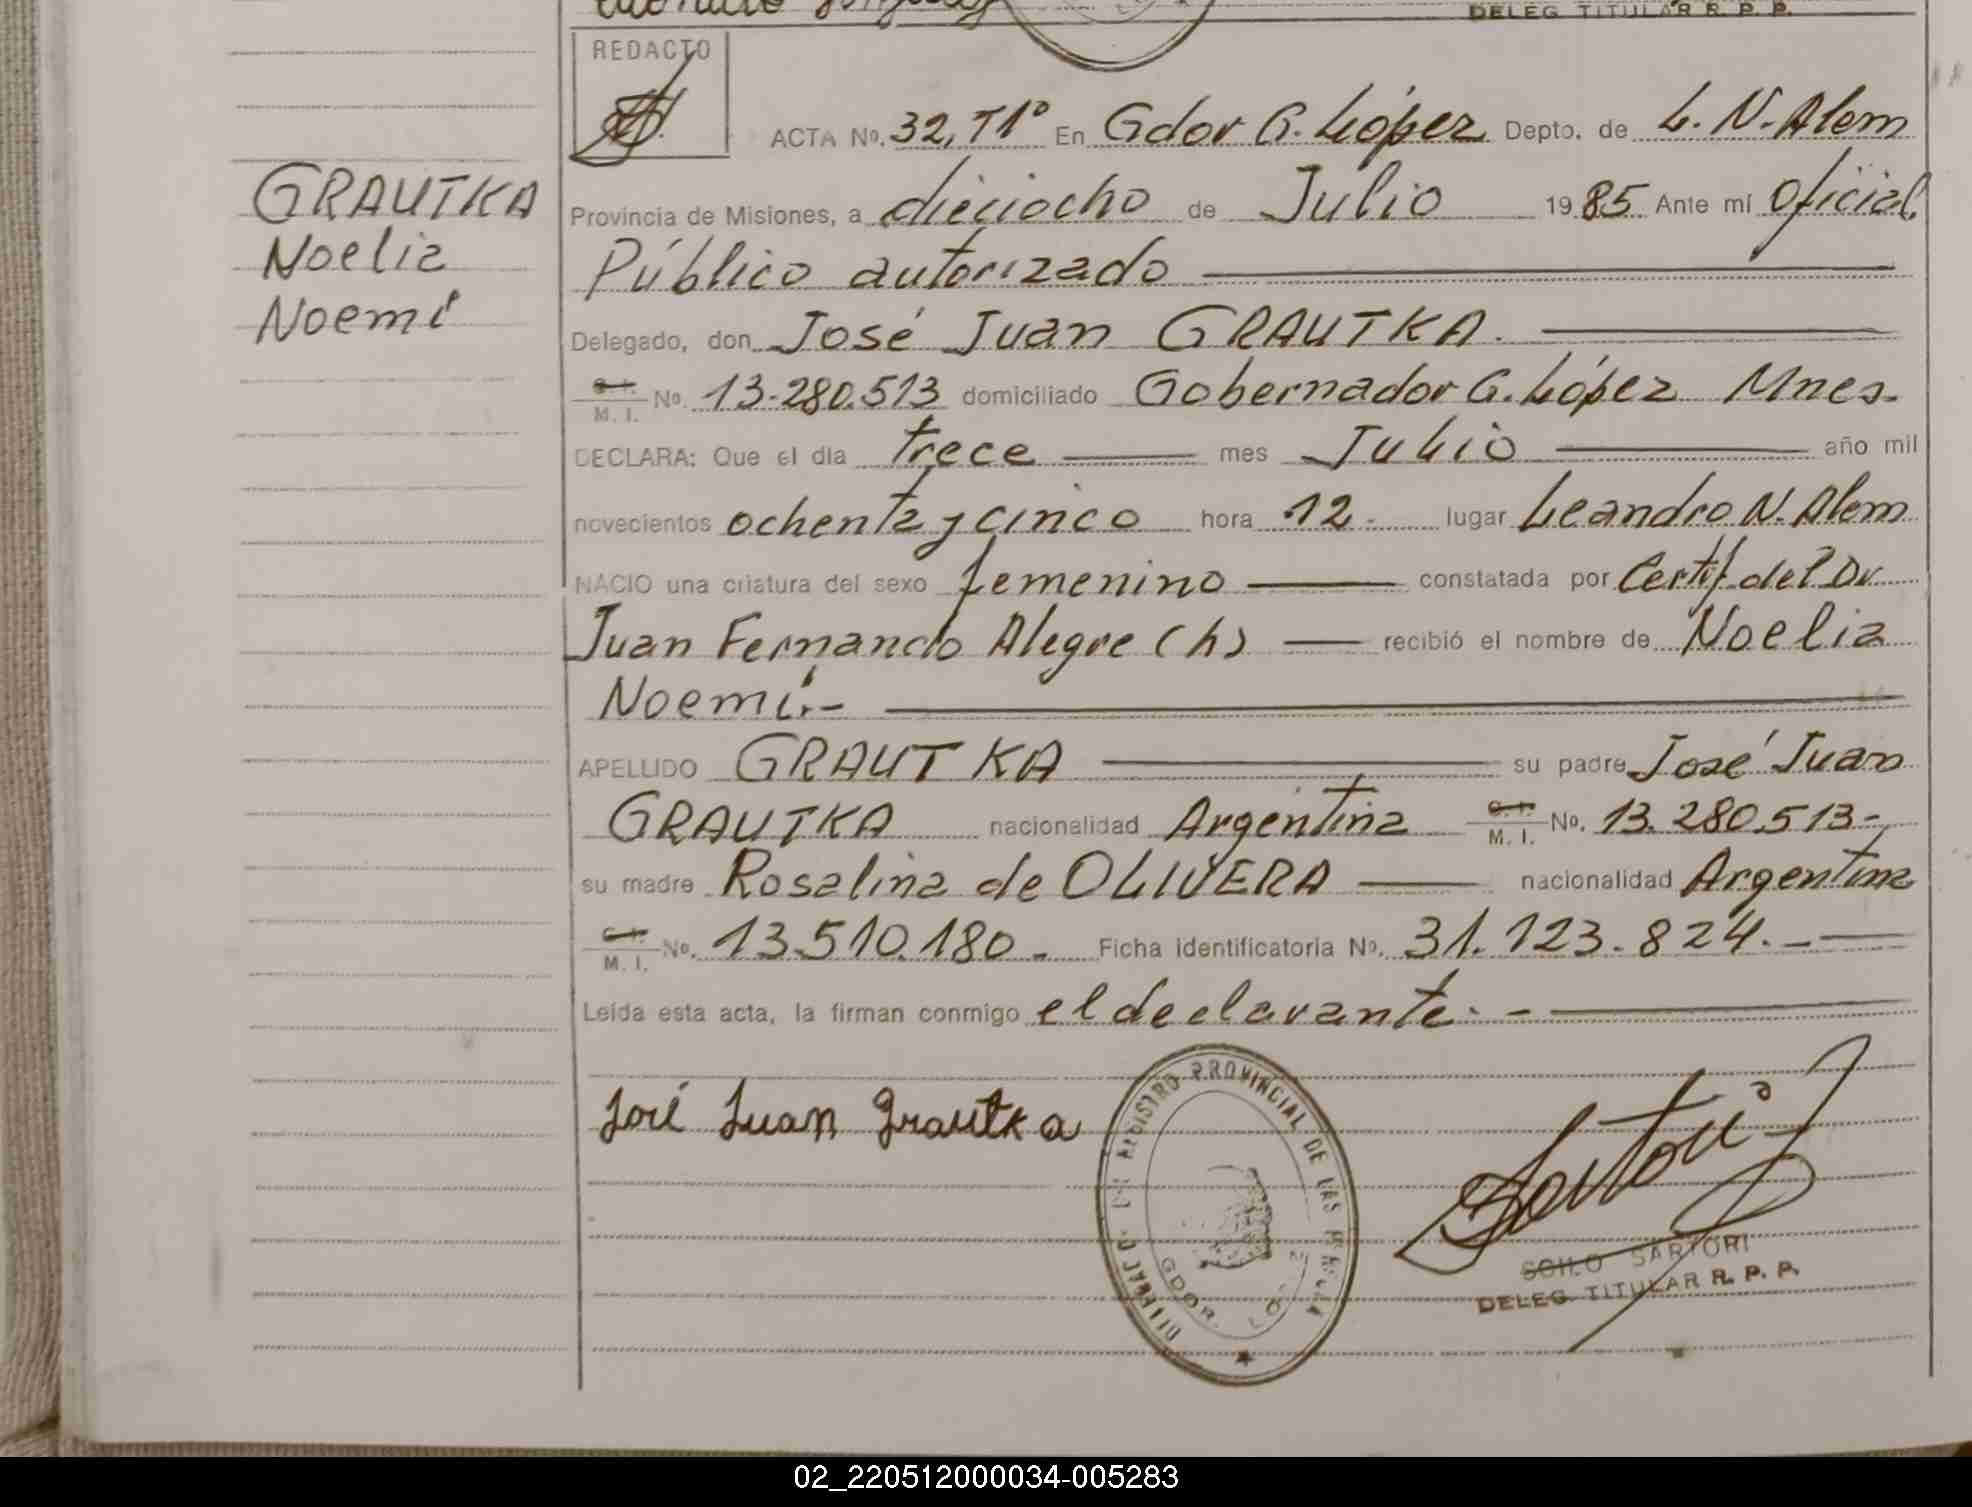 DELEG. TITULAR R. P. P.
REDACTO
ACTA Nº. 32, Tº1º En Gdor G. López Depto. de L. N. Alem
GRAUTKA
Noelia
Noemí
Provincia de Misiones, a dieciocho de Julio 1985 Ante mí Oficial
Público autorizado
Delegado, don José Juan GRAUTKA.
C. I. / M. I. Nº. 13.280.513 domiciliado Gobernador G. López Mnes.
DECLARA: Que el día trece mes Julio año mil
novecientos ochenta y cinco hora 12. lugar Leandro N. Alem
NACIO una criatura del sexo femenino constatada por Certif. del Dr.
Juan Fernando Alegre (h) recibió el nombre de Noelia
Noemí.-
APELLIDO GRAUTKA su padre José Juan
GRAUTKA nacionalidad Argentina C. I. / M. I. Nº. 13.280.513-
su madre Rosalina de OLIVERA nacionalidad Argentina
C. I. / M. I. Nº. 13.510.180.- Ficha identificatoria Nº. 31.123.824.-
Leída esta acta, la firman conmigo el declarante.-
José Juan Grautka
REGISTRO PROVINCIAL DE LAS PERSONAS
GDOR. LOPEZ
Sartori
SOILO SARTORI
DELEG. TITULAR R. P. P.
02_220512000034-005283